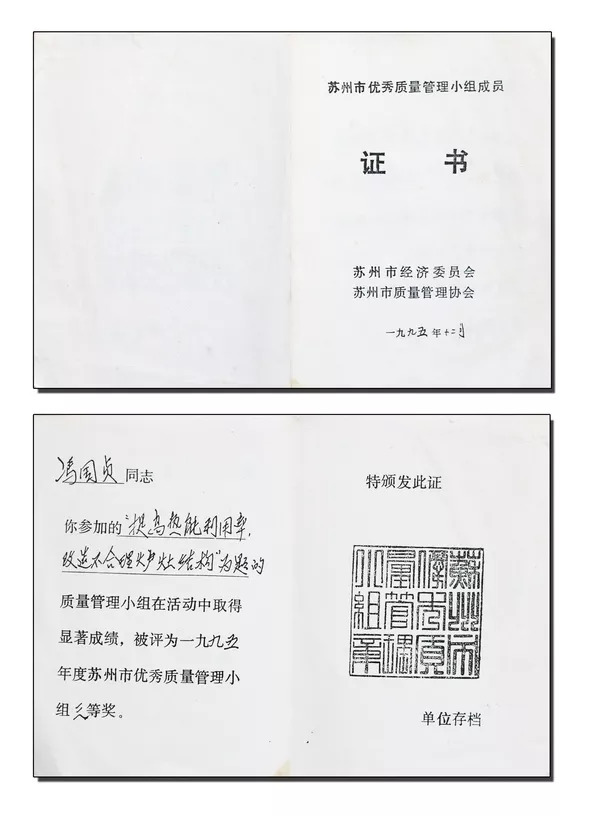 苏州市优秀质量管理小组成员
证 书
苏州市经济委员会
苏州市质量管理协会
一九九五年十二月
冯国贞同志
你参加的“提高热能利用率,
改进不合理炉灶结构”为题的
质量管理小组在活动中取得
显著成绩，被评为一九九五
年度苏州市优秀质量管理小
组三等奖。
特颁发此证
蘇州市
優秀質
量管理
小組章
单位存档